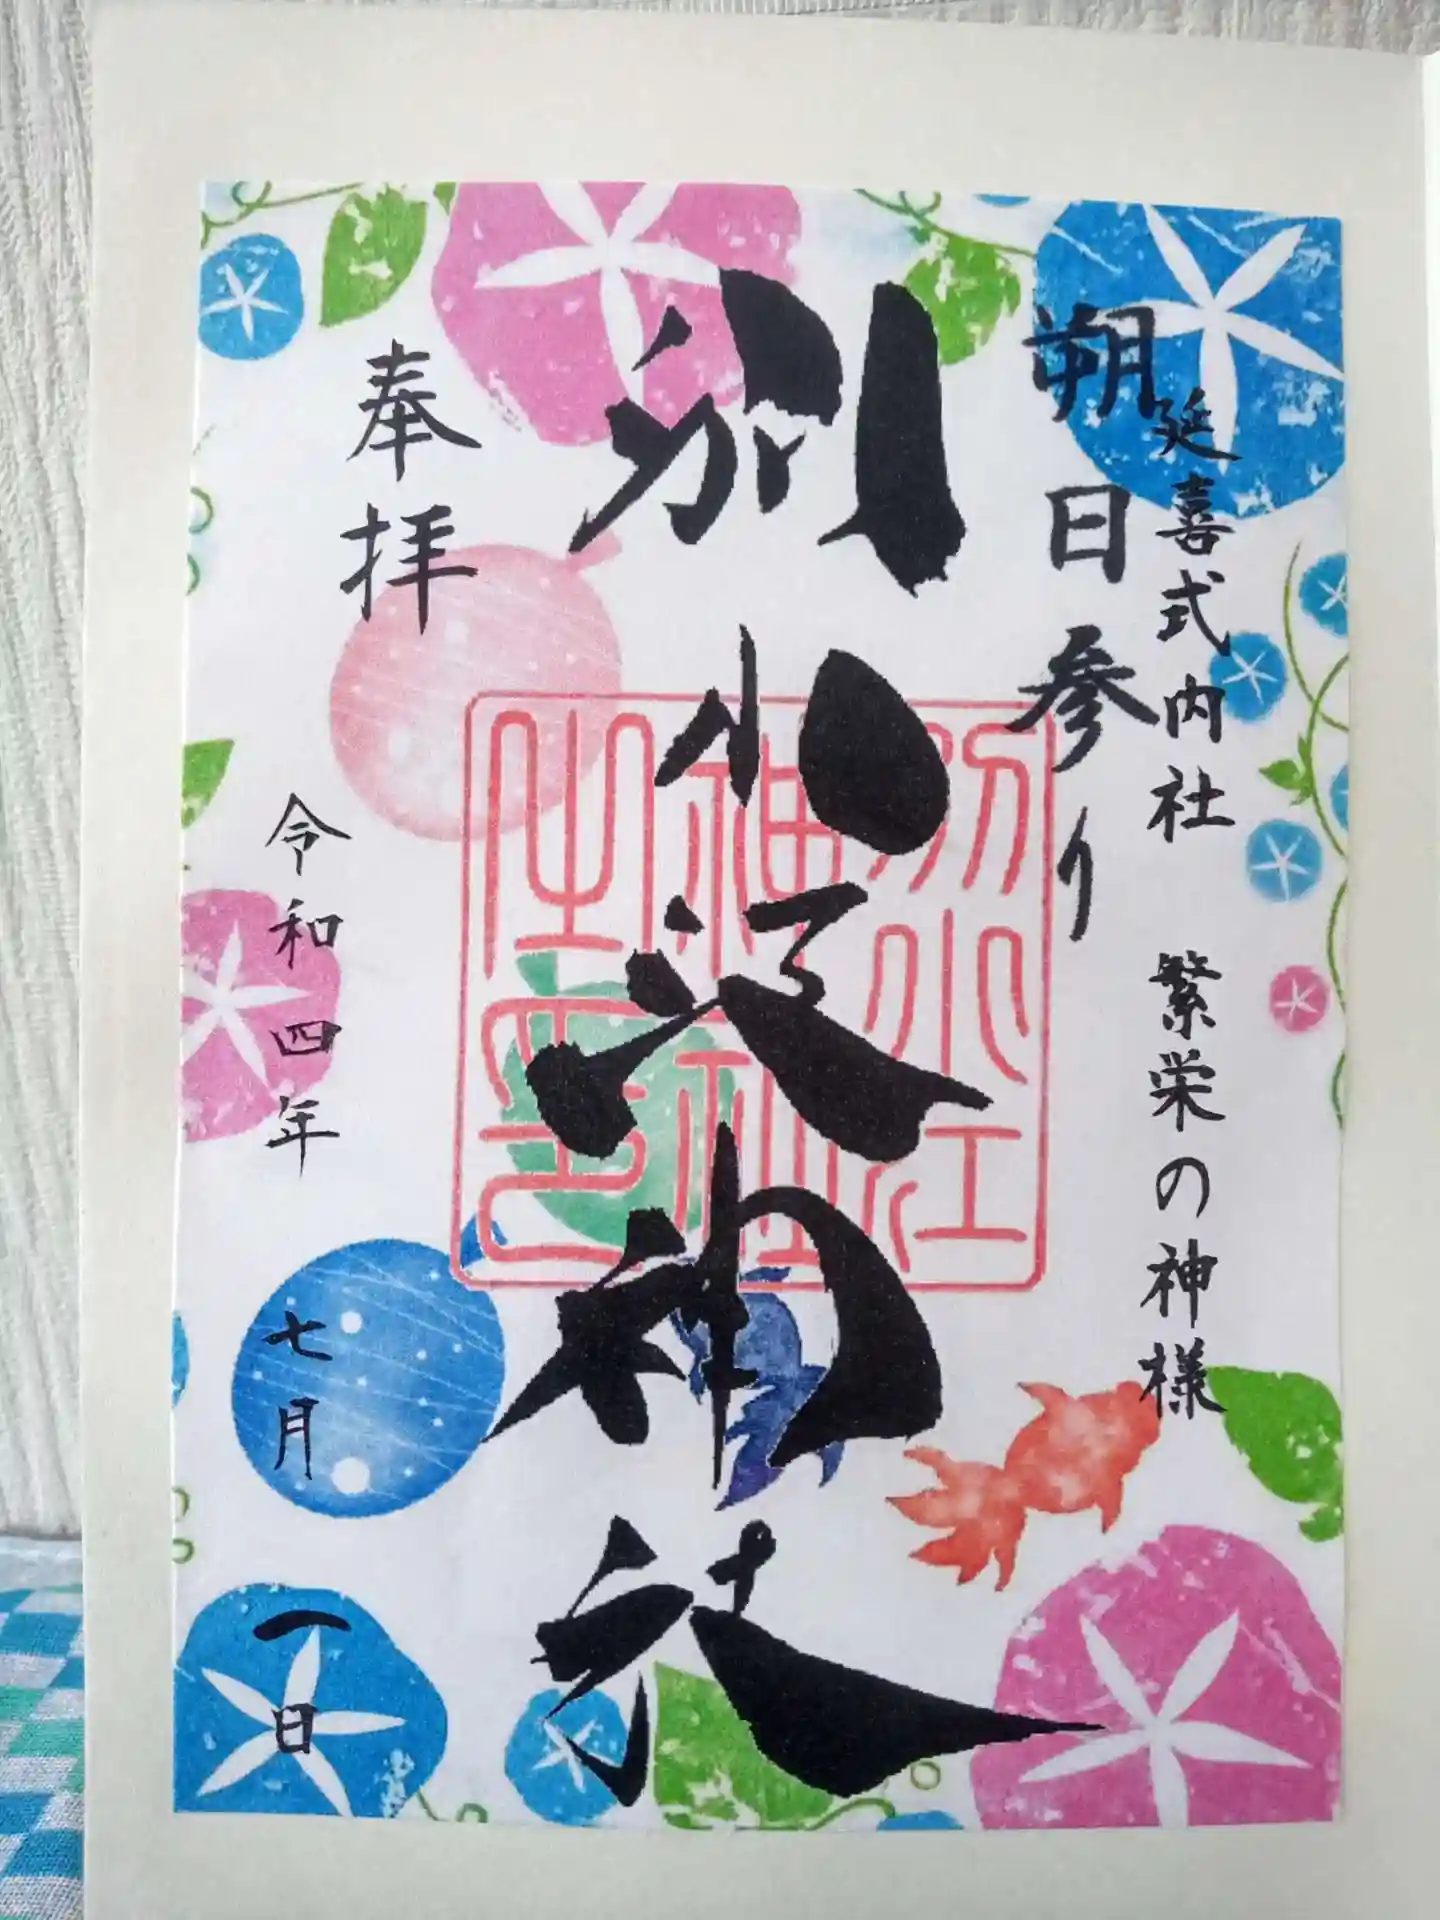 延喜式内社 繁栄の神様
朔日参り
別小江神社
別小江
神社
之印
奉拝
令和四年 七月 一日